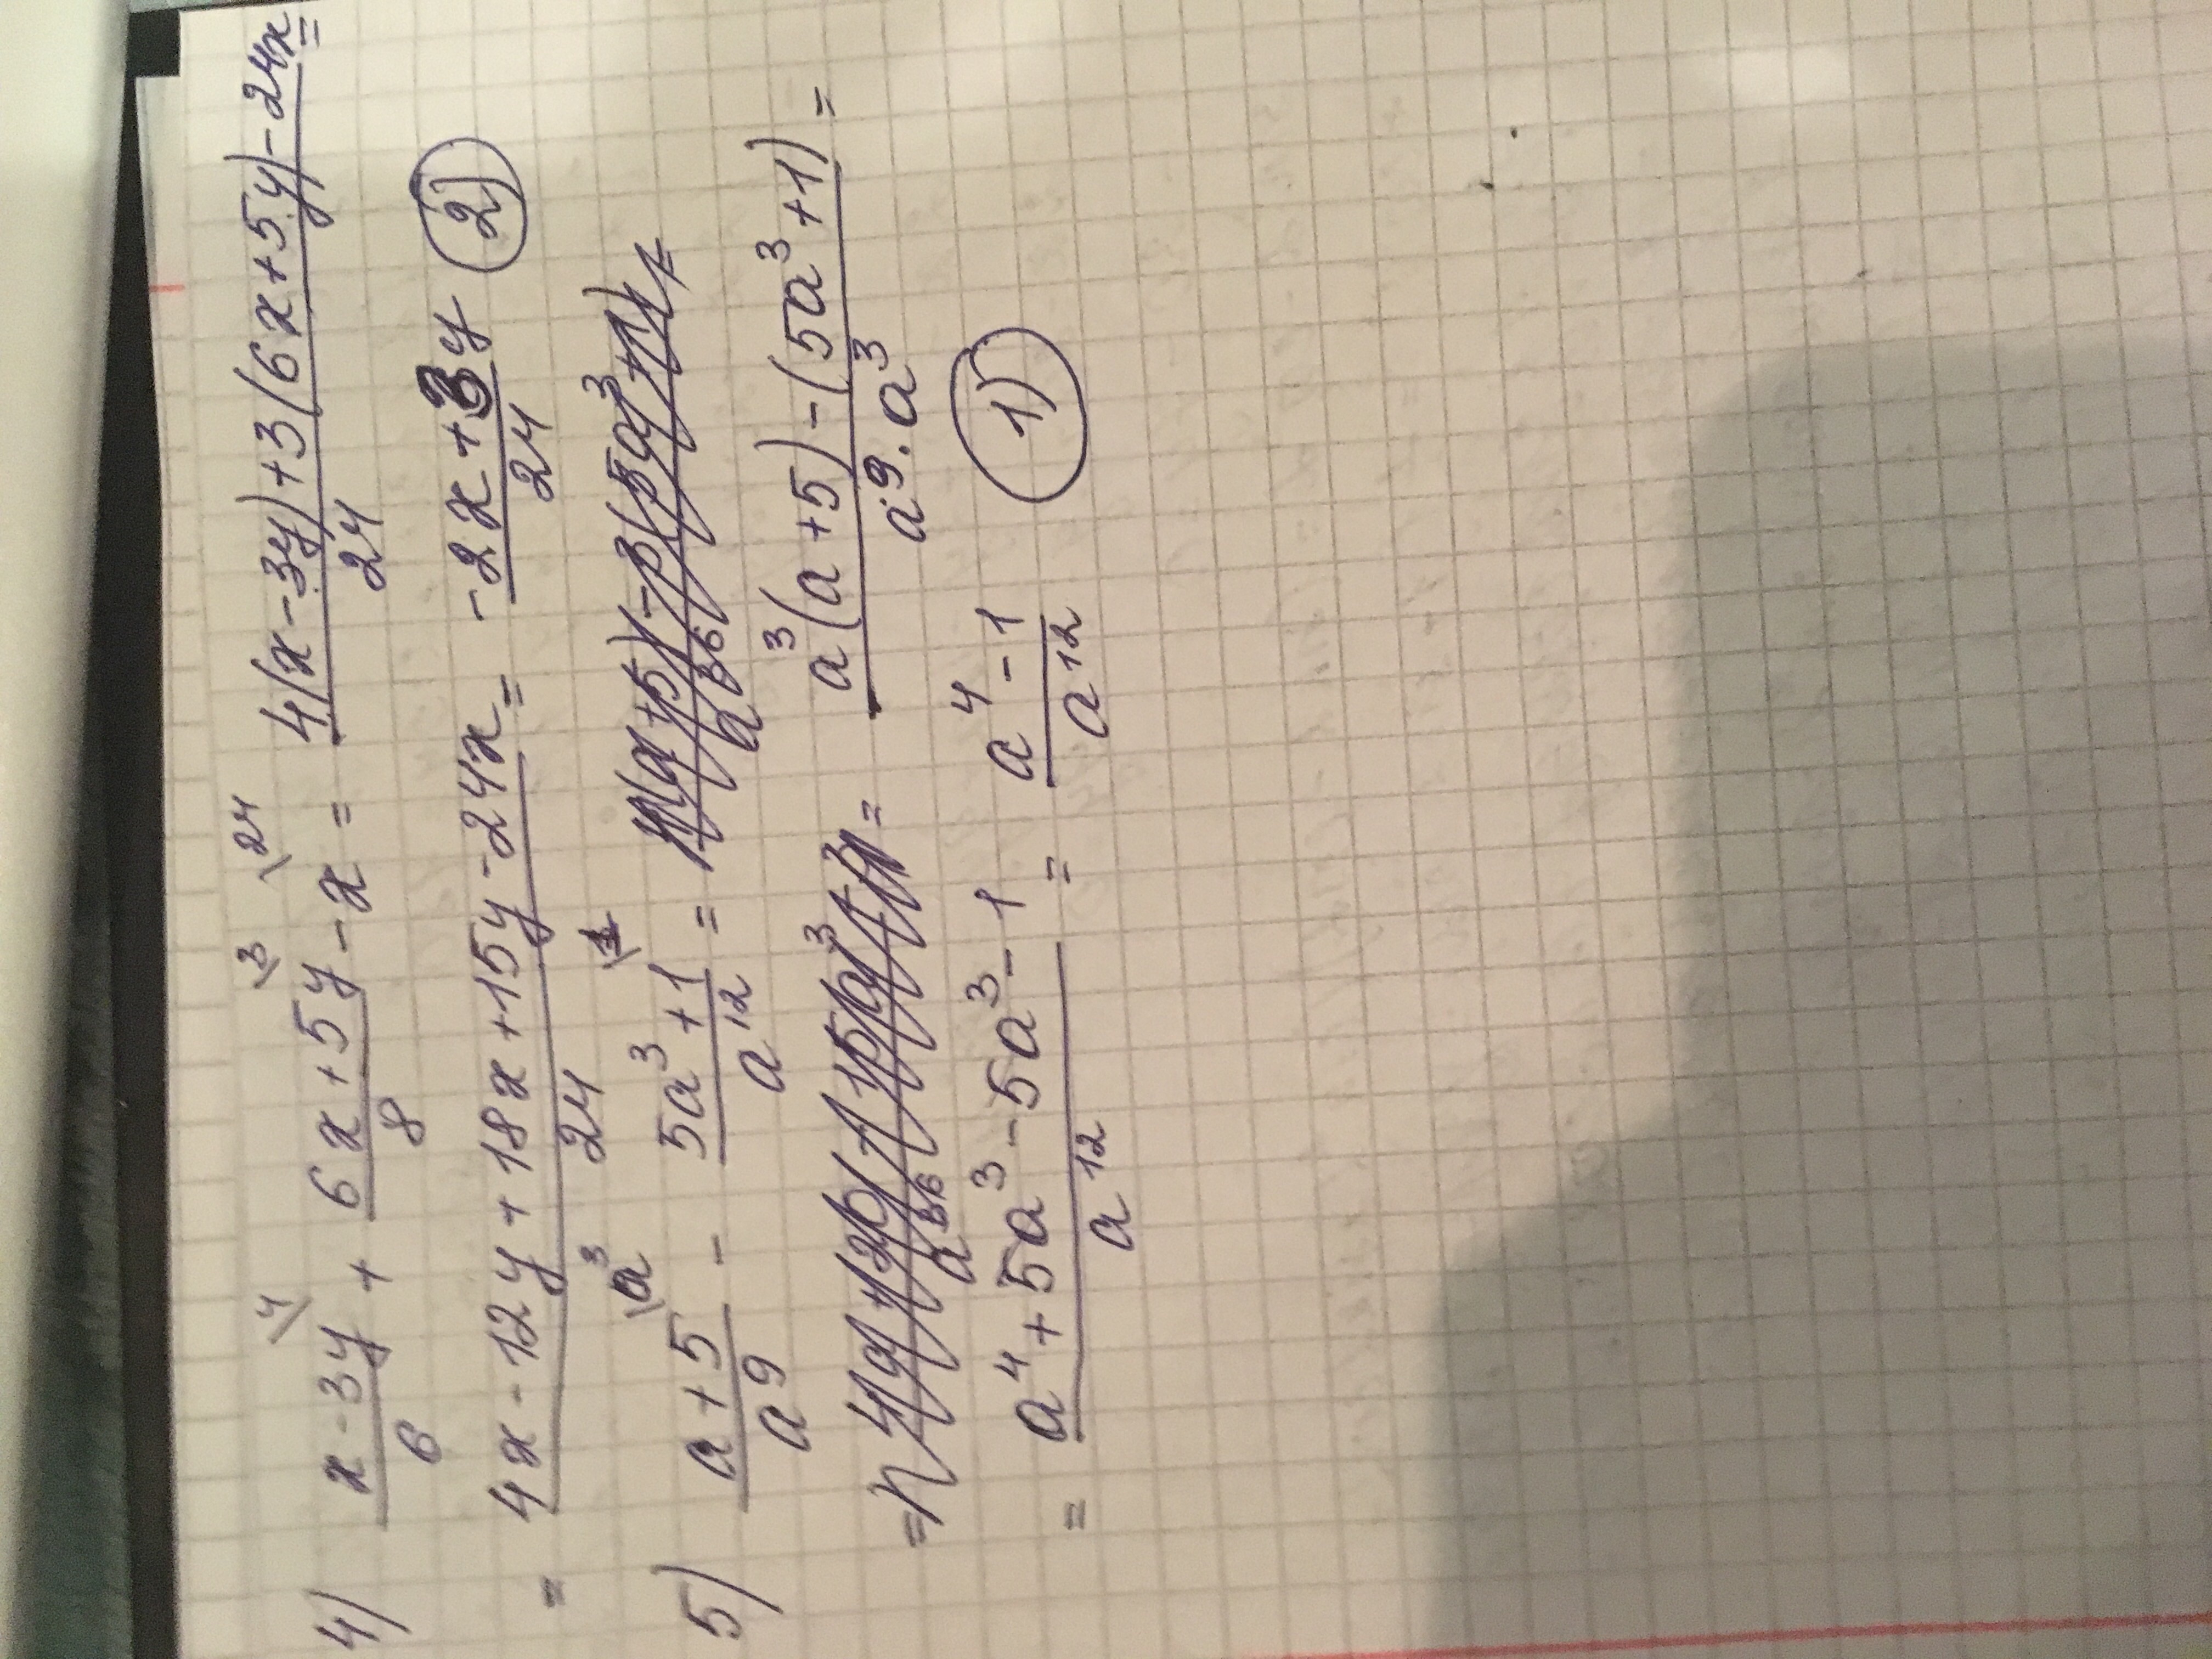 4) \frac{x-3y}{6}^{\4} + \frac{6x+5y}{8}^{\3} - x^{\24} = \frac{4(x-3y)+3(6x+5y)-24x}{24} =
= \frac{4x-12y+18x+15y-24x}{24} = \frac{-2x+3y}{24} 2)
5) \frac{a+5}{a^9}^{\a^3} - \frac{5a^3+1}{a^{12}}^{\1} =
= \frac{a^3(a+5)-(5a^3+1)}{a^9 · a^3} =
= \frac{a^4+5a^3-5a^3-1}{a^{12}} = \frac{a^4-1}{a^{12}} 1)